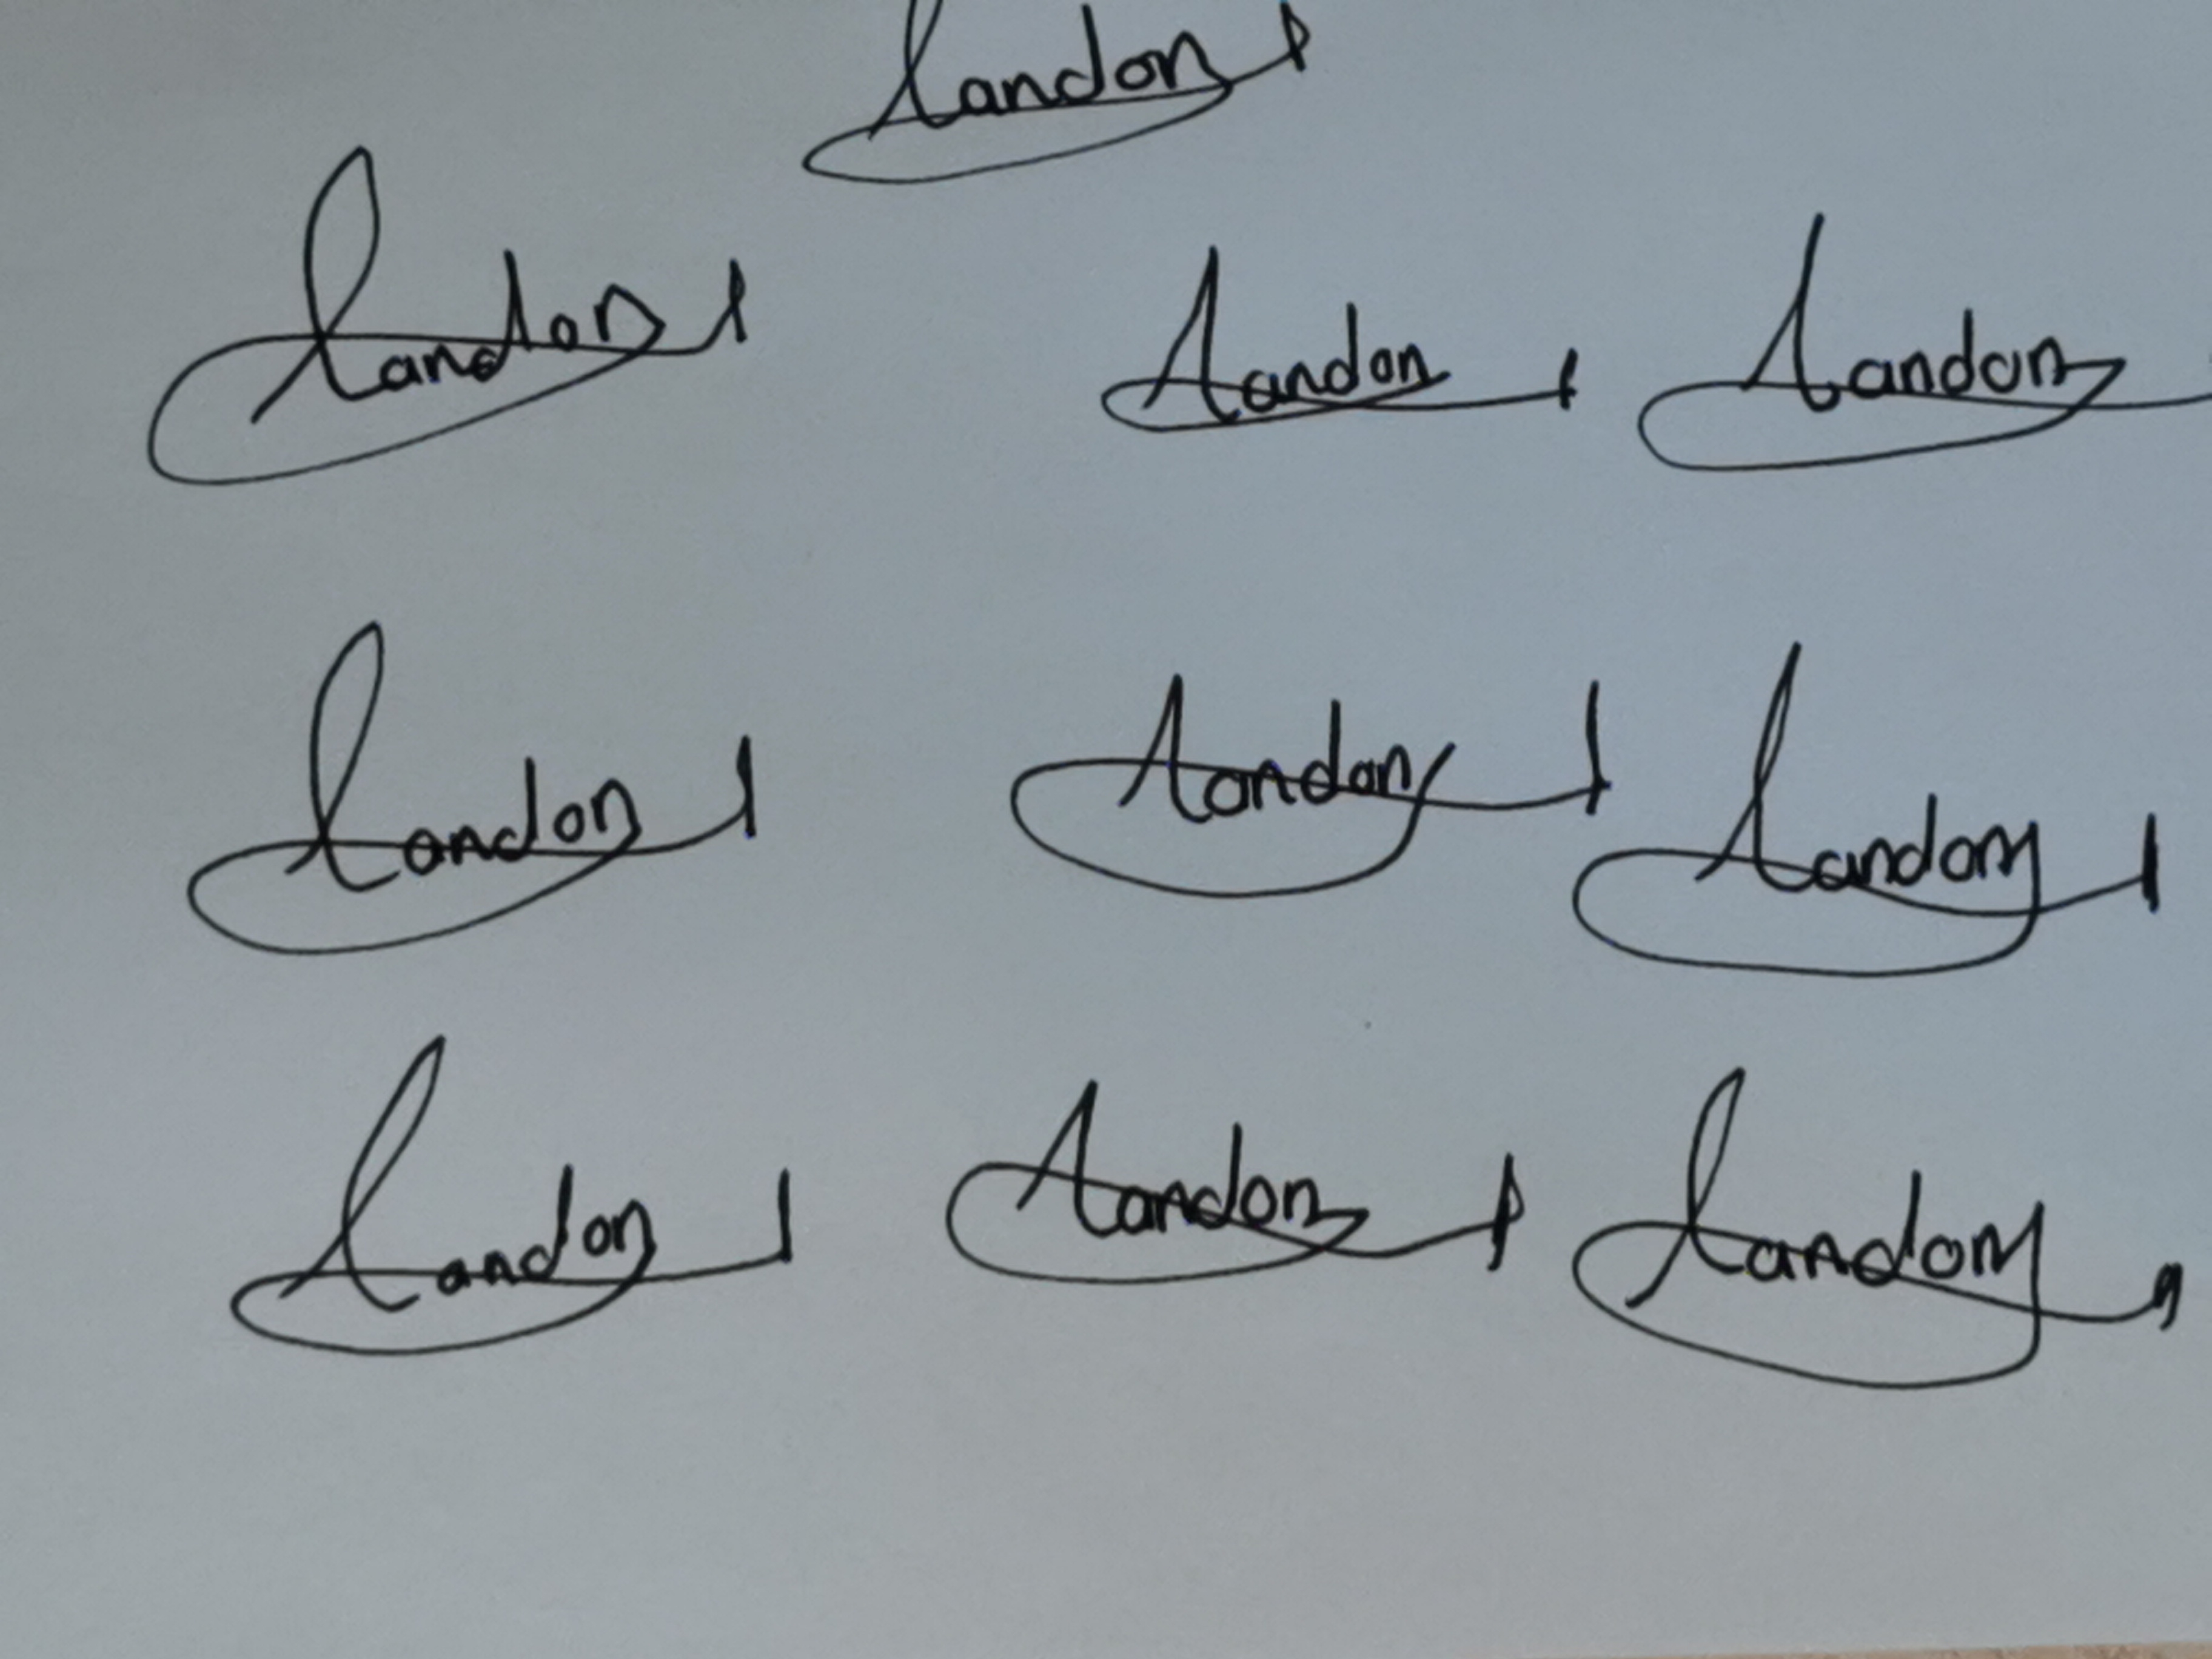 Landon
Landon Landon Landon
Landon Landon Landon
Landon Landon Landon